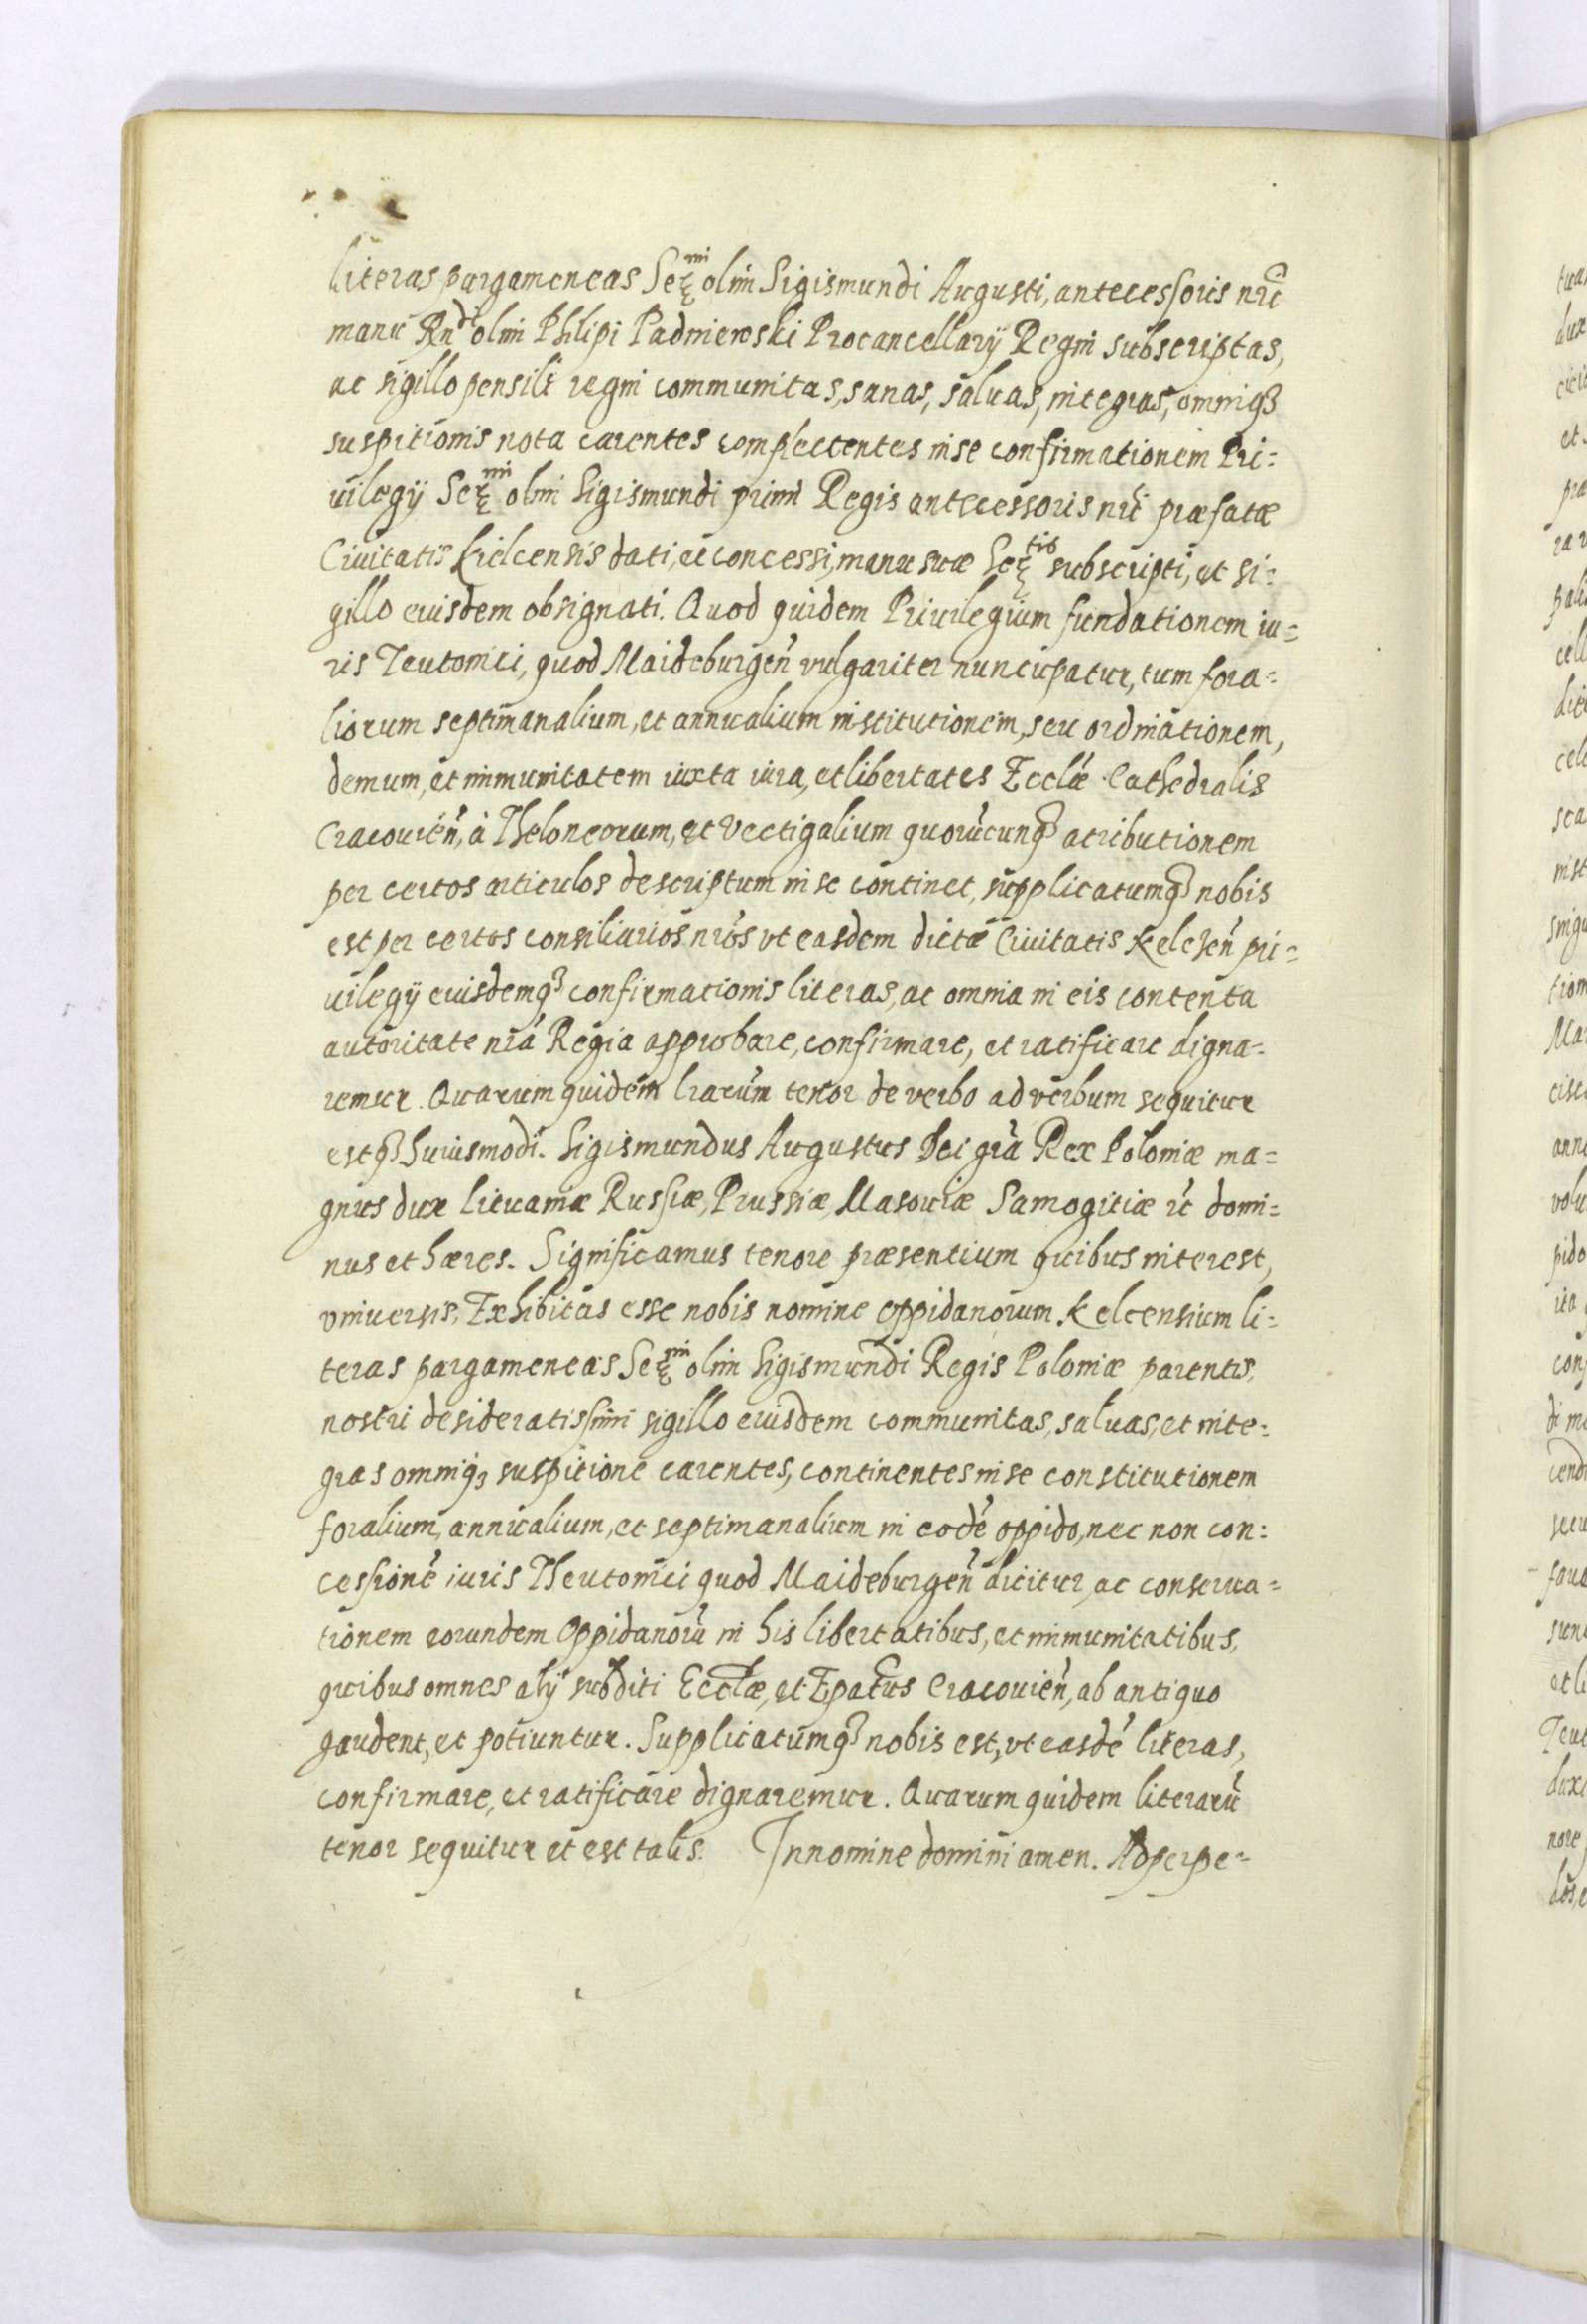 literas pargameneas Ser<sup>mi</sup> olim Sigismundi Augusti, antecessoris nri
manu Rn<sup>di</sup> olim Philipi Padniewski Procancellarij Regni subscriptas,
ac sigillo pensili regni communitas, sanas, saluas, integras, omniq3
suspitionis nota carentes complectentes in se confirmationem Pri=
uilegij Ser<sup>mi</sup> olim Sigismundi primi Regis antecessoris nri præfatæ
Ciuitatis Kielcensis dati, et concessi, manu suæ Ser<sup>tis</sup> subscripti, et si=
gillo eiusdem obsignati. Quod quidem Priuilegium fundationem iu=
ris Teutonici, quod Maideburgeñ vulgariter nuncupatur, tum fora=
liorum septimanalium, et annualium institutionem, seu ordinationem,
demum, et immunitatem iuxta iura, et libertates Ecclæ Cathedralis
Cracouieñ, à Theloneorum, et Vectigalium quorũcunq3 atributionem
per certos articulos descriptum in se continet, supplicatumq3 nobis
est per certos consiliarios nros vt easdem dictæ Ciuitatis Kelceñ pri=
uilegij eiusdemq3 confirmationis literas, ac omnia in eis contenta
autoritate nrã Regia approbare, confirmare, et ratificare digna=
remur. Quarum quidem lrarum tenor de verbo ad verbum sequitur
estq3 huiusmodi. Sigismundus Augustus Dei grã Rex Poloniæ ma=
gnus dux Lituaniæ Russiæ, Prussiæ, Masouiæ Samogitiæ zc̃ domi=
nus et hæres. Significamus tenore præsentium quibus interest,
vniuersis, Exhibitas esse nobis nomine oppidanorum Kelcensium li=
teras pargameneas Ser<sup>mi</sup> olim Sigismundi Regis Poloniæ parentis,
nostri desideratissimi sigillo eiusdem communitas, saluas, et inte=
gras omniq3 suspitione carentes, continentes in se constitutionem
foralium, annualium, et septimanalium in eodẽ oppido, nec non con=
cessionẽ iuris Theutonici quod Maideburgeñ dicitur, ac conserua=
tionem eorundem Oppidanorũ in his libertatibus, et immunitatibus,
quibus omnes alij subditi Ecclæ, et Epatus Cracouieñ, ab antiquo
gaudent, et potiuntur. Supplicatumq3 nobis est, vt easdẽ literas,
confirmare, et ratificare dignaremur. Quarum quidem literarũ
tenor sequitur et est talis. In nomine domini amen. Ad perpe=